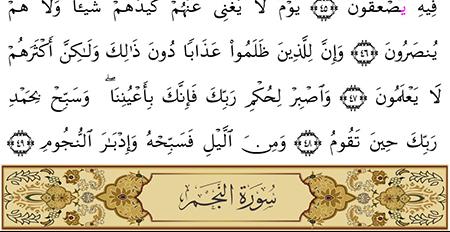 فِيهِ يُصْعَقُونَ ﴿٤٥﴾ يَوْمَ لَا يُغْنِى عَنْهُمْ كَيْدُهُمْ شَيْـًٔا وَلَا هُمْ
يُنصَرُونَ ﴿٤٦﴾ وَإِنَّ لِلَّذِينَ ظَلَمُوا۟ عَذَابًا دُونَ ذَٰلِكَ وَلَـٰكِنَّ أَكْثَرَهُمْ
لَا يَعْلَمُونَ ﴿٤٧﴾ وَٱصْبِرْ لِحُكْمِ رَبِّكَ فَإِنَّكَ بِأَعْيُنِنَا ۖ وَسَبِّحْ بِحَمْدِ
رَبِّكَ حِينَ تَقُومُ ﴿٤٨﴾ وَمِنَ ٱلَّيْلِ فَسَبِّحْهُ وَإِدْبَـٰرَ ٱلنُّجُومِ ﴿٤٩﴾
سُورَةُ النَّجْمِ